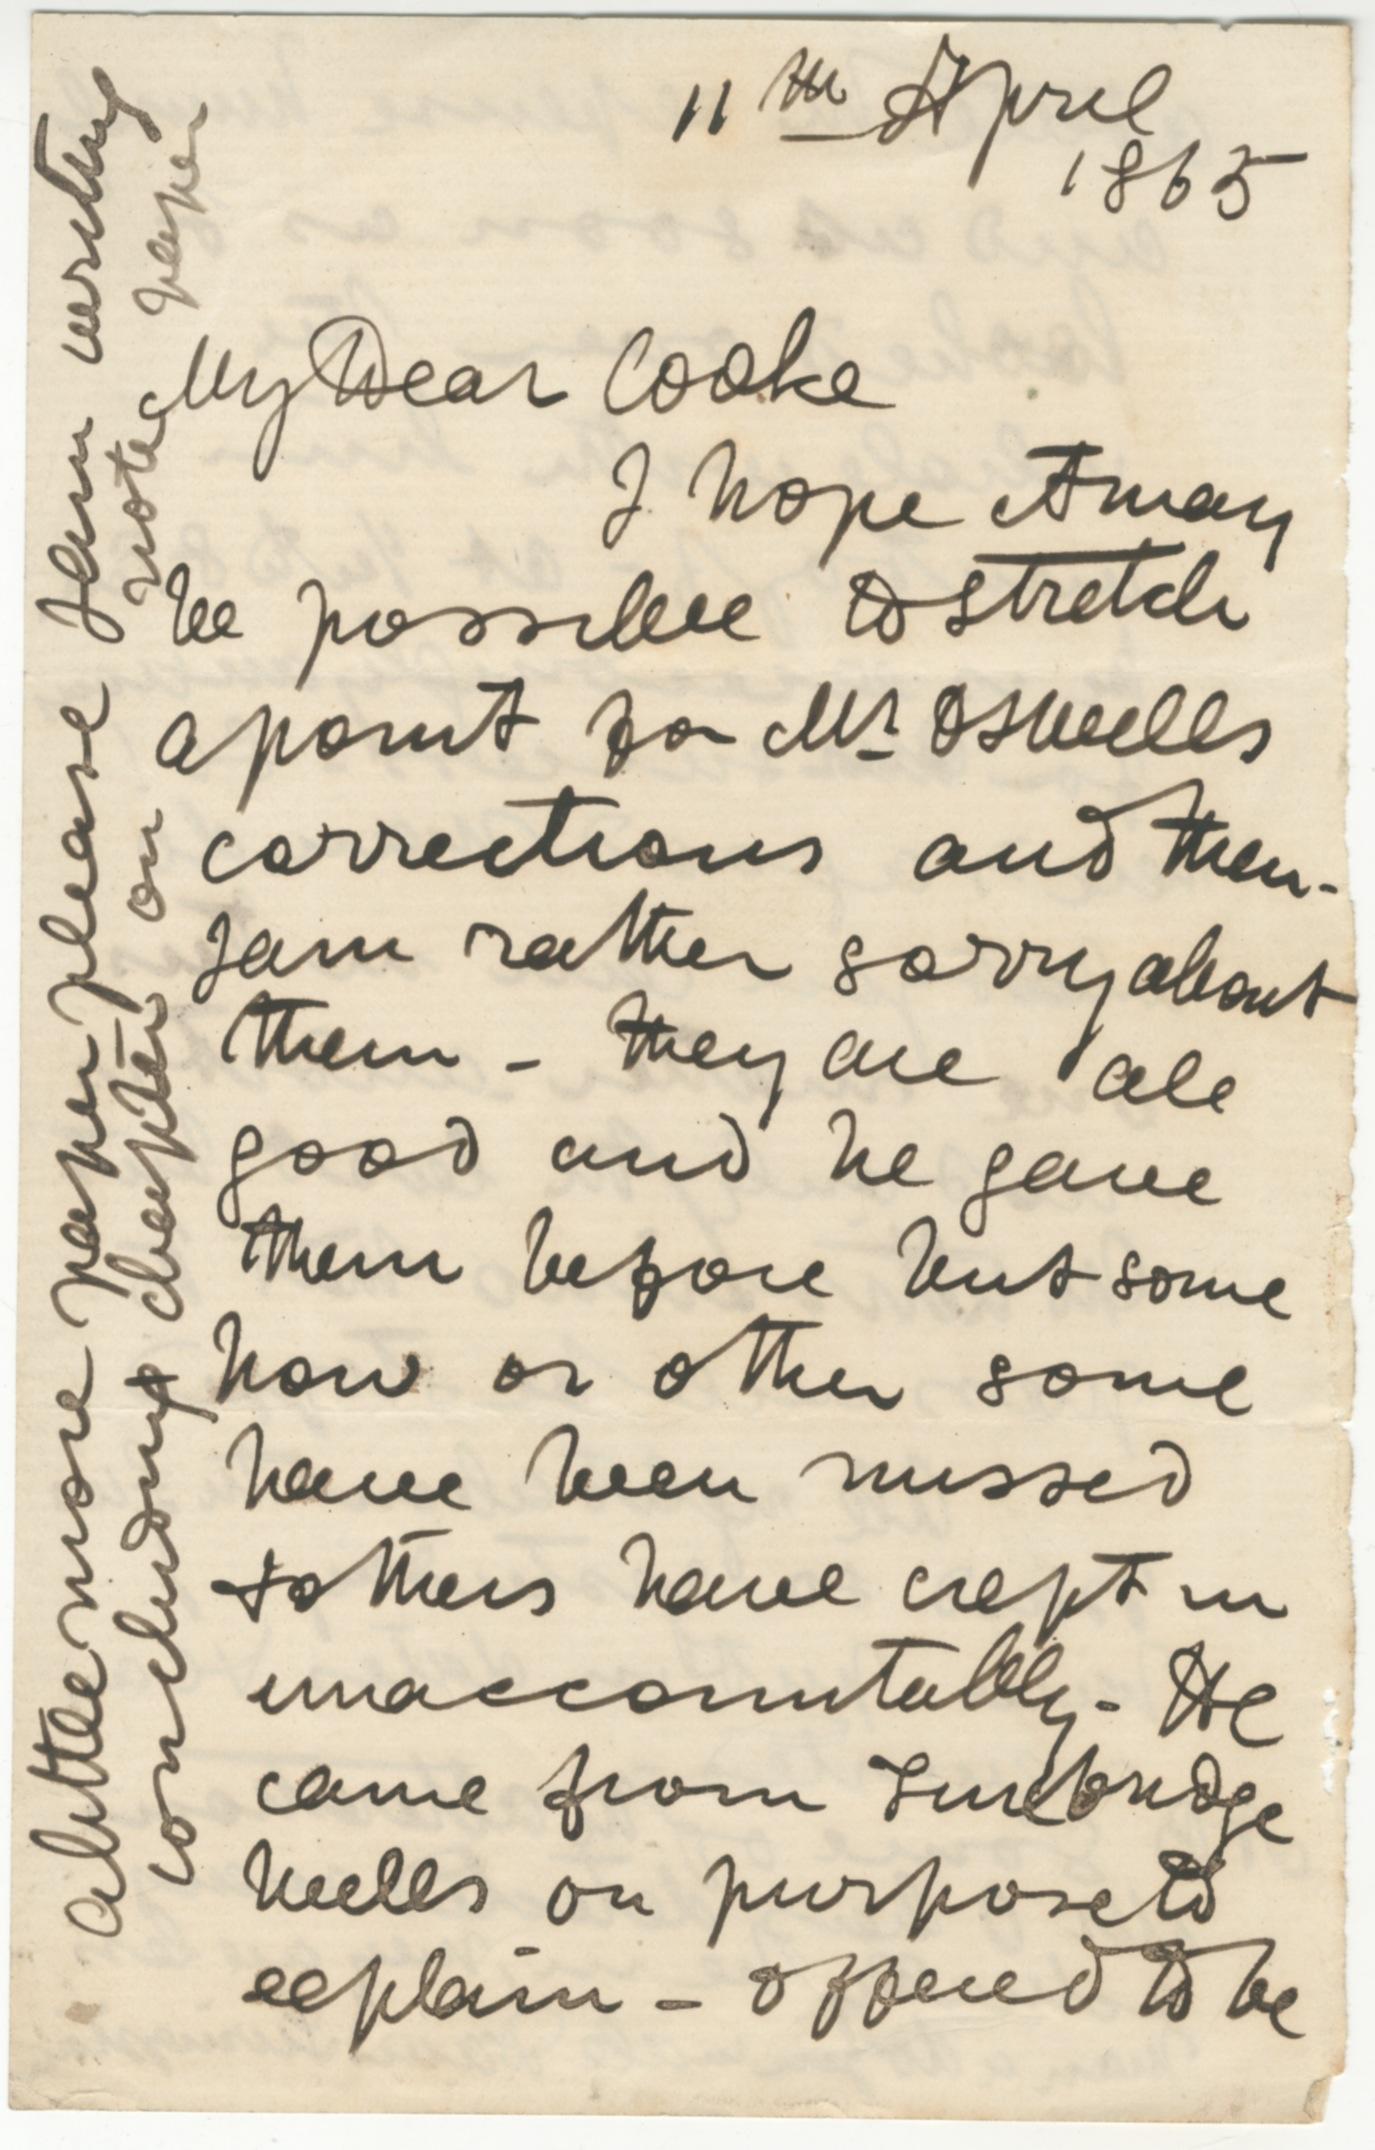 11th April
1865
My Dear Cooke
I hope it may
be possible to stretch
a point for Mr Oswells
corrections and then -
I am rather sorry about
them - they are all
good and he gave
them before but some
how or other some
have been missed
& others have crept in
unaccountably - He
came from Tunbridge
Wells on purpose to
explain - offered to be
a little more paper please I am writing
concluding chapter on note paper